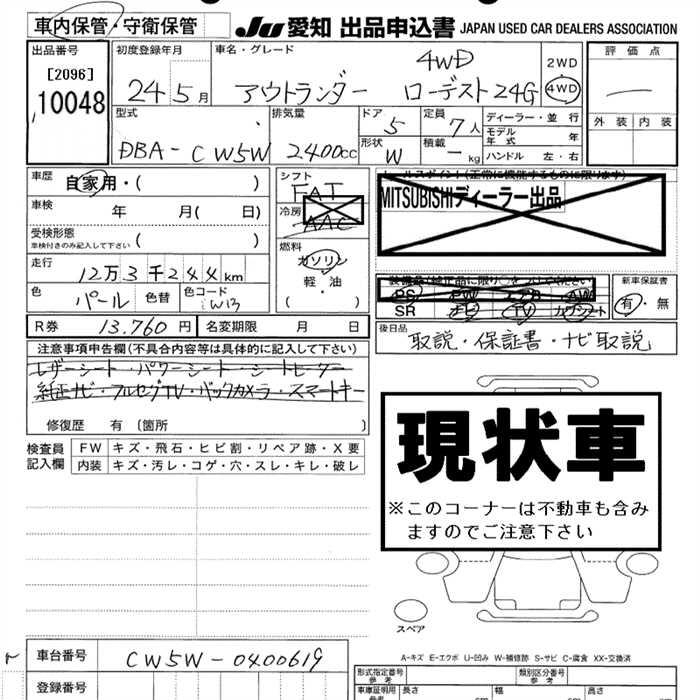 車内保管・守衛保管 JU 愛知 出品申込書 JAPAN USED CAR DEALERS ASSOCIATION
出品番号 初度登録年月 車名・グレード 4WD 2WD 評価点
[2096] 10048 24年5月 アウトランダー ローデスト24G 4WD ー
型式 排気量 ドア 5 定員 7人 ディーラー・並行 外装 内装
DBA-CW5W 2400cc 形状 W 積載 ーkg モデル年式 年
ハンドル 左・右
車歴 自家用・( ) シフト FAT セールスポイント(正常に機能するものに限ります)
車検 年 月( 日) 冷房 AAC MITSUBISHIディーラー出品
受検形態 ( )
車検付きのみ記入して下さい
燃料 ガソリン
走行 12万3千244km 軽・油 装備品(純正品に限り○をつけてください 新車保証書
色 パール 色替 色コード W13 ( ) PS PW エアB AW 有・無
SR ナビ TV カワシート
R券 13,760円 名変期限 月 日 後日品
取説・保証書・ナビ取説
注意事項申告欄(不具合内容等は具体的に記入して下さい)
レザーシート・パワーシート・シートヒーター
純正ナビ・フルセグTV・バックカメラ・スマートキー
修復歴 有 〔箇所 〕
現状車
※このコーナーは不動車も含み
ますのでご注意下さい
検査員記入欄 FW キズ・飛石・ヒビ割・リペア跡・X要
内装 キズ・汚レ・コゲ・穴・スレ・キレ・破レ
スペア
A-キズ E-エクボ U-凹み W-補修跡 S-サビ C-腐食 XX-交換済
車台番号 CW5W-0400619
登録番号
型式指定番号 参考 類別区分番号 参考
車庫証明用 長さ 幅 高さ